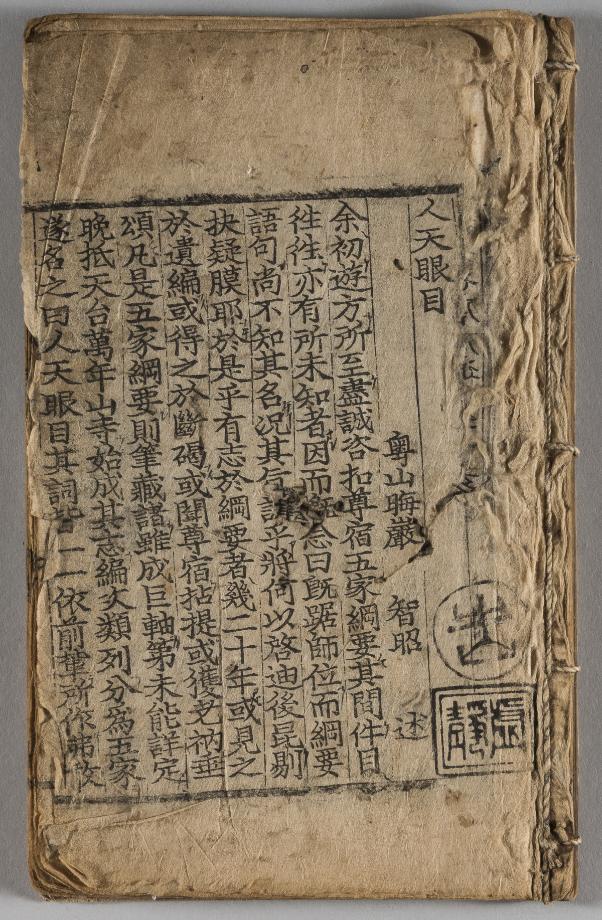 人天眼目
粤山晦巖 智昭 述
余初遊方所至盡誠咨扣尊宿五家綱要其間件目
徃徃亦有所未知者因而 念曰旣踞師位而綱要
語句尚不知其名況其 詣乎將何以啓迪後昆剔
抉疑膜耶於是乎有志於綱要者幾二十年或見之
於遺編或得之於斷碣或聞尊宿拈提或獲老衲垂
頌凡是五家綱要則筆藏諸雖成巨軸第未能詳定
晚抵天台萬年山寺始成其志編次類列分爲五家
遂名之曰人天眼目其詞皆一一依前輩所作弗敢
虛靜